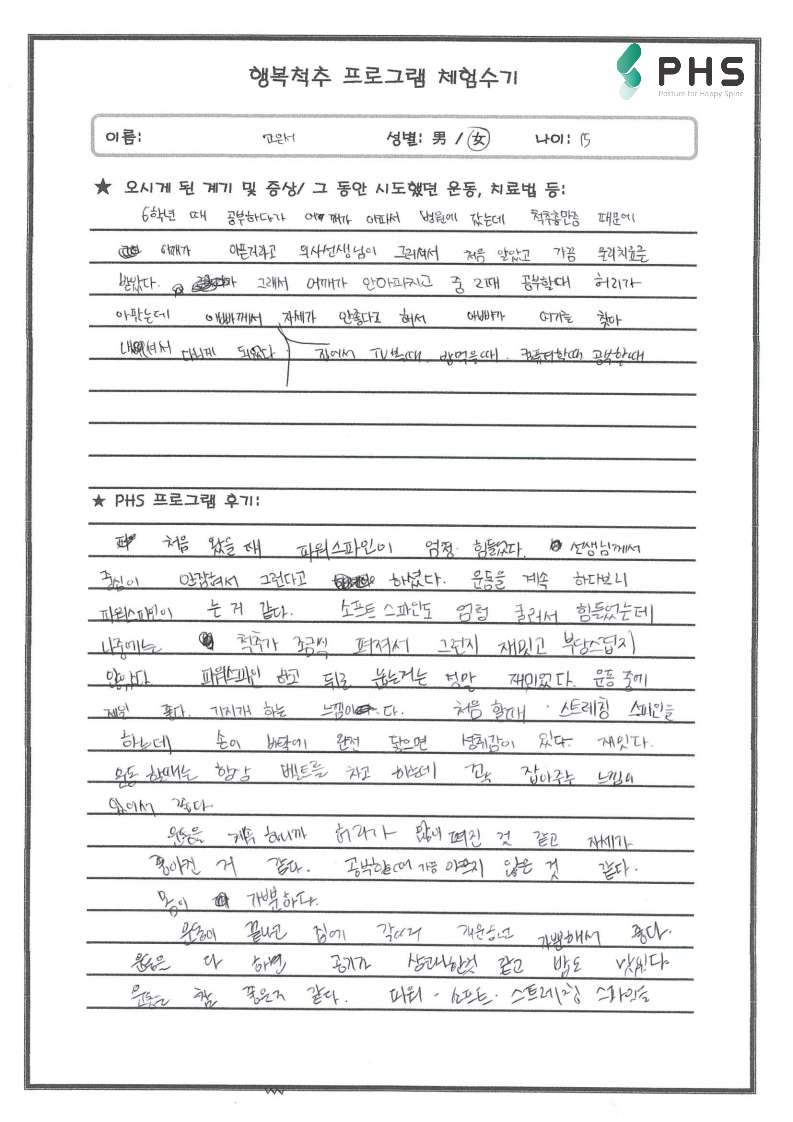 PHS
Posture for Happy Spine
행복척추 프로그램 체험수기
이름: 성별: 男 / 女 나이: 15
★ 오시게 된 계기 및 증상/ 그 동안 시도했던 운동, 치료법 등:
6학년 때 공부하다가 어깨가 아파서 병원에 갔는데 척추측만증 때문에
어깨가 아픈거라고 의사선생님이 그러셔서 처음 알았고 가끔 물리치료를
받았다. 그래서 어깨가 안아파지고 중 2때 공부할때 허리가
아팠는데 아빠께서 자세가 안좋다고 해서 아빠가 여기를 찾아
내셔서 다니게 되었다 집에서 TV볼때, 밥먹을때, 컴퓨터할때 공부할때
★ PHS 프로그램 후기:
처음 왔을 때 파워스파인이 엄청 힘들었다. 선생님께서
중심이 안잡혀서 그런다고 하셨다. 운동을 계속 하다보니
파워스파인이 는 거 같다. 소프트 스파인도 엄청 굴러서 힘들었는데
나중에는 척추가 조금씩 펴져서 그런지 재밌고 부담스럽지
않았다. 파워스파인 하고 뒤로 눕는거는 정말 재미있다. 운동 중에
제일 좋다. 기지개 하는 느낌이다. 처음 할때 스트레칭 스파인을
하는데 손이 바닥에 완전 닿으면 성취감이 있다. 재밌다.
운동 할때는 항상 벨트를 차고 하는데 꼭 잡아주는 느낌이
있어서 좋다.
운동을 계속 하니까 허리가 많이 펴진 것 같고 자세가
좋아진 거 같다. 공부할때 가끔 아프지 않은 것 같다.
몸이 가뿐하다.
운동이 끝나고 집에 갈때 개운하면 가뿐해서 좋다.
운동을 다 하면 공기가 상쾌한것 같고 밥도 맛있다.
운동은 참 좋은거 같다. 파워 · 소프트 · 스트레칭 스파인을